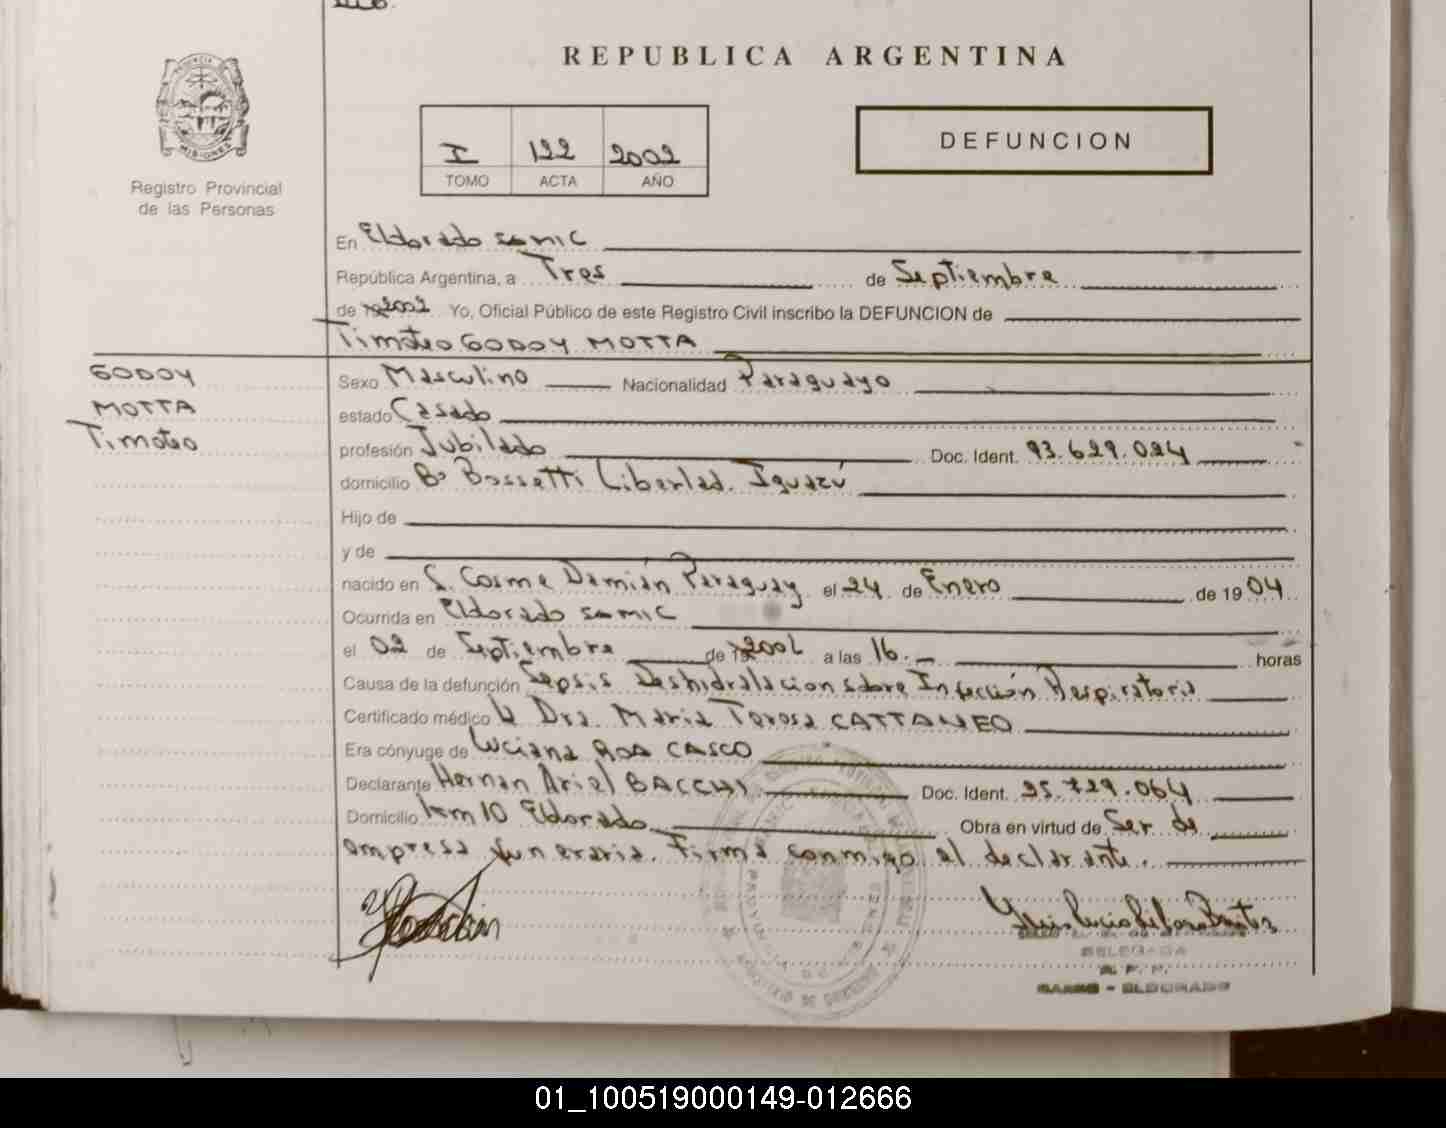 REPUBLICA ARGENTINA
MISIONES
Registro Provincial
de las Personas
I 122 2002
TOMO ACTA AÑO
DEFUNCION
En Eldorado samic
República Argentina, a Tres de Septiembre
de 19 2002 Yo, Oficial Público de este Registro Civil inscribo la DEFUNCION de
Timoteo GODOY MOTTA
GODOY
MOTTA
Timoteo
Sexo Masculino Nacionalidad Paraguayo
estado Casado
profesión Jubilado Doc. Ident. 93.629.024
domicilio Bº Bossetti Libertad. Iguazú
Hijo de
y de
nacido en S. Cosme Damián Paraguay el 24 de Enero de 1904
Ocurrida en Eldorado samic
el 02 de Septiembre de 19 2002 a las 16.- horas
Causa de la defunción Sepsis Deshidratacion sobre Infección Respiratoria
Certificado médico Dra. Maria Teresa CATTANEO
Era cónyuge de Luciana ROA CASCO
Declarante Hernan Ariel BACCHI Doc. Ident. 25.729.064
Domicilio km 10 Eldorado Obra en virtud de Ser de
empresa funeraria. Firma conmigo el declarante.
DELEGADA
R. P. P.
SAMIC - ELDORADO
01_100519000149-012666